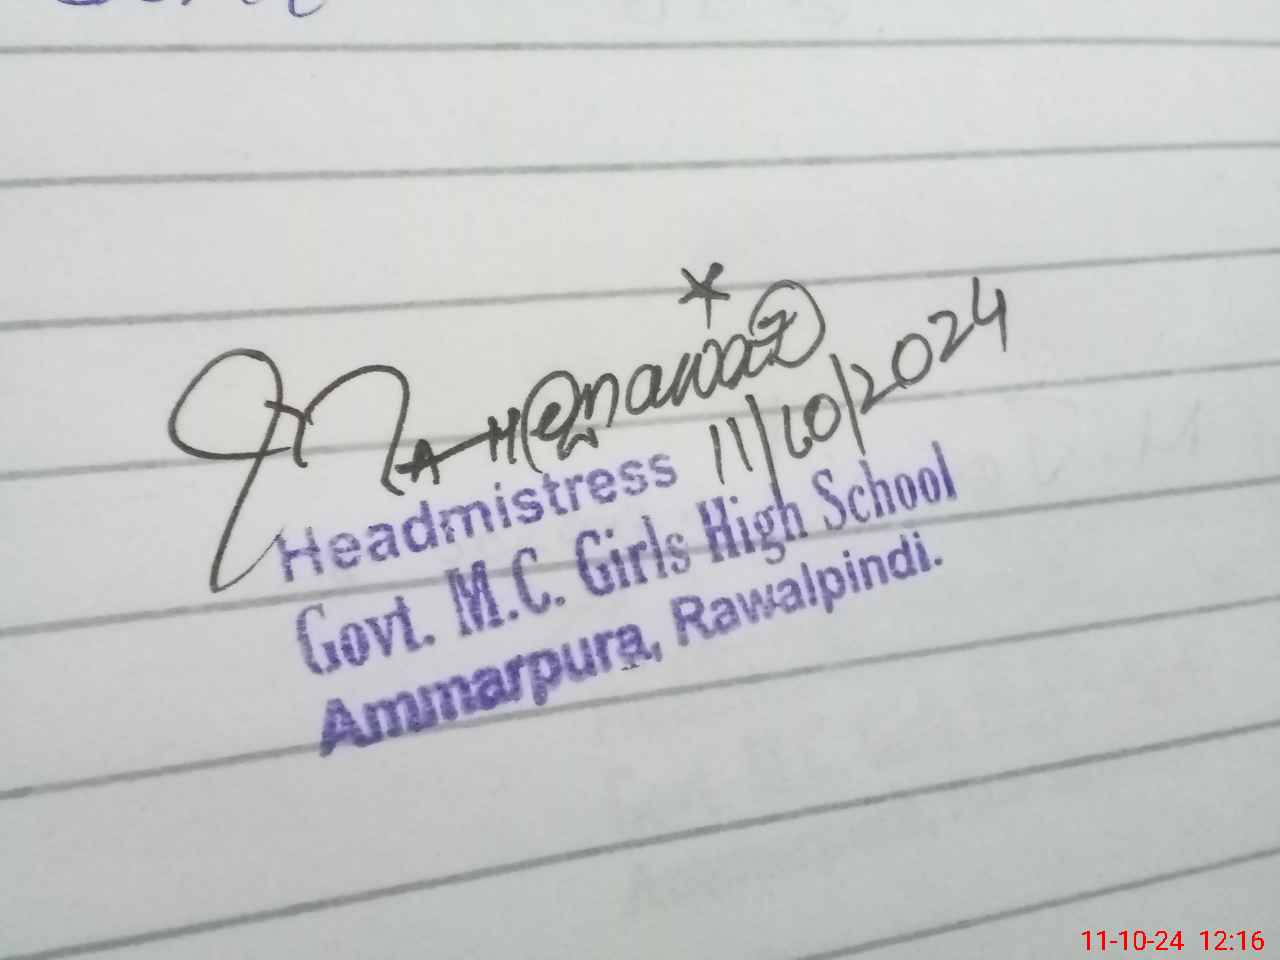 11/10/2024
Headmistress
Govt. M.C. Girls High School
Ammarpura, Rawalpindi.
11-10-24 12:16